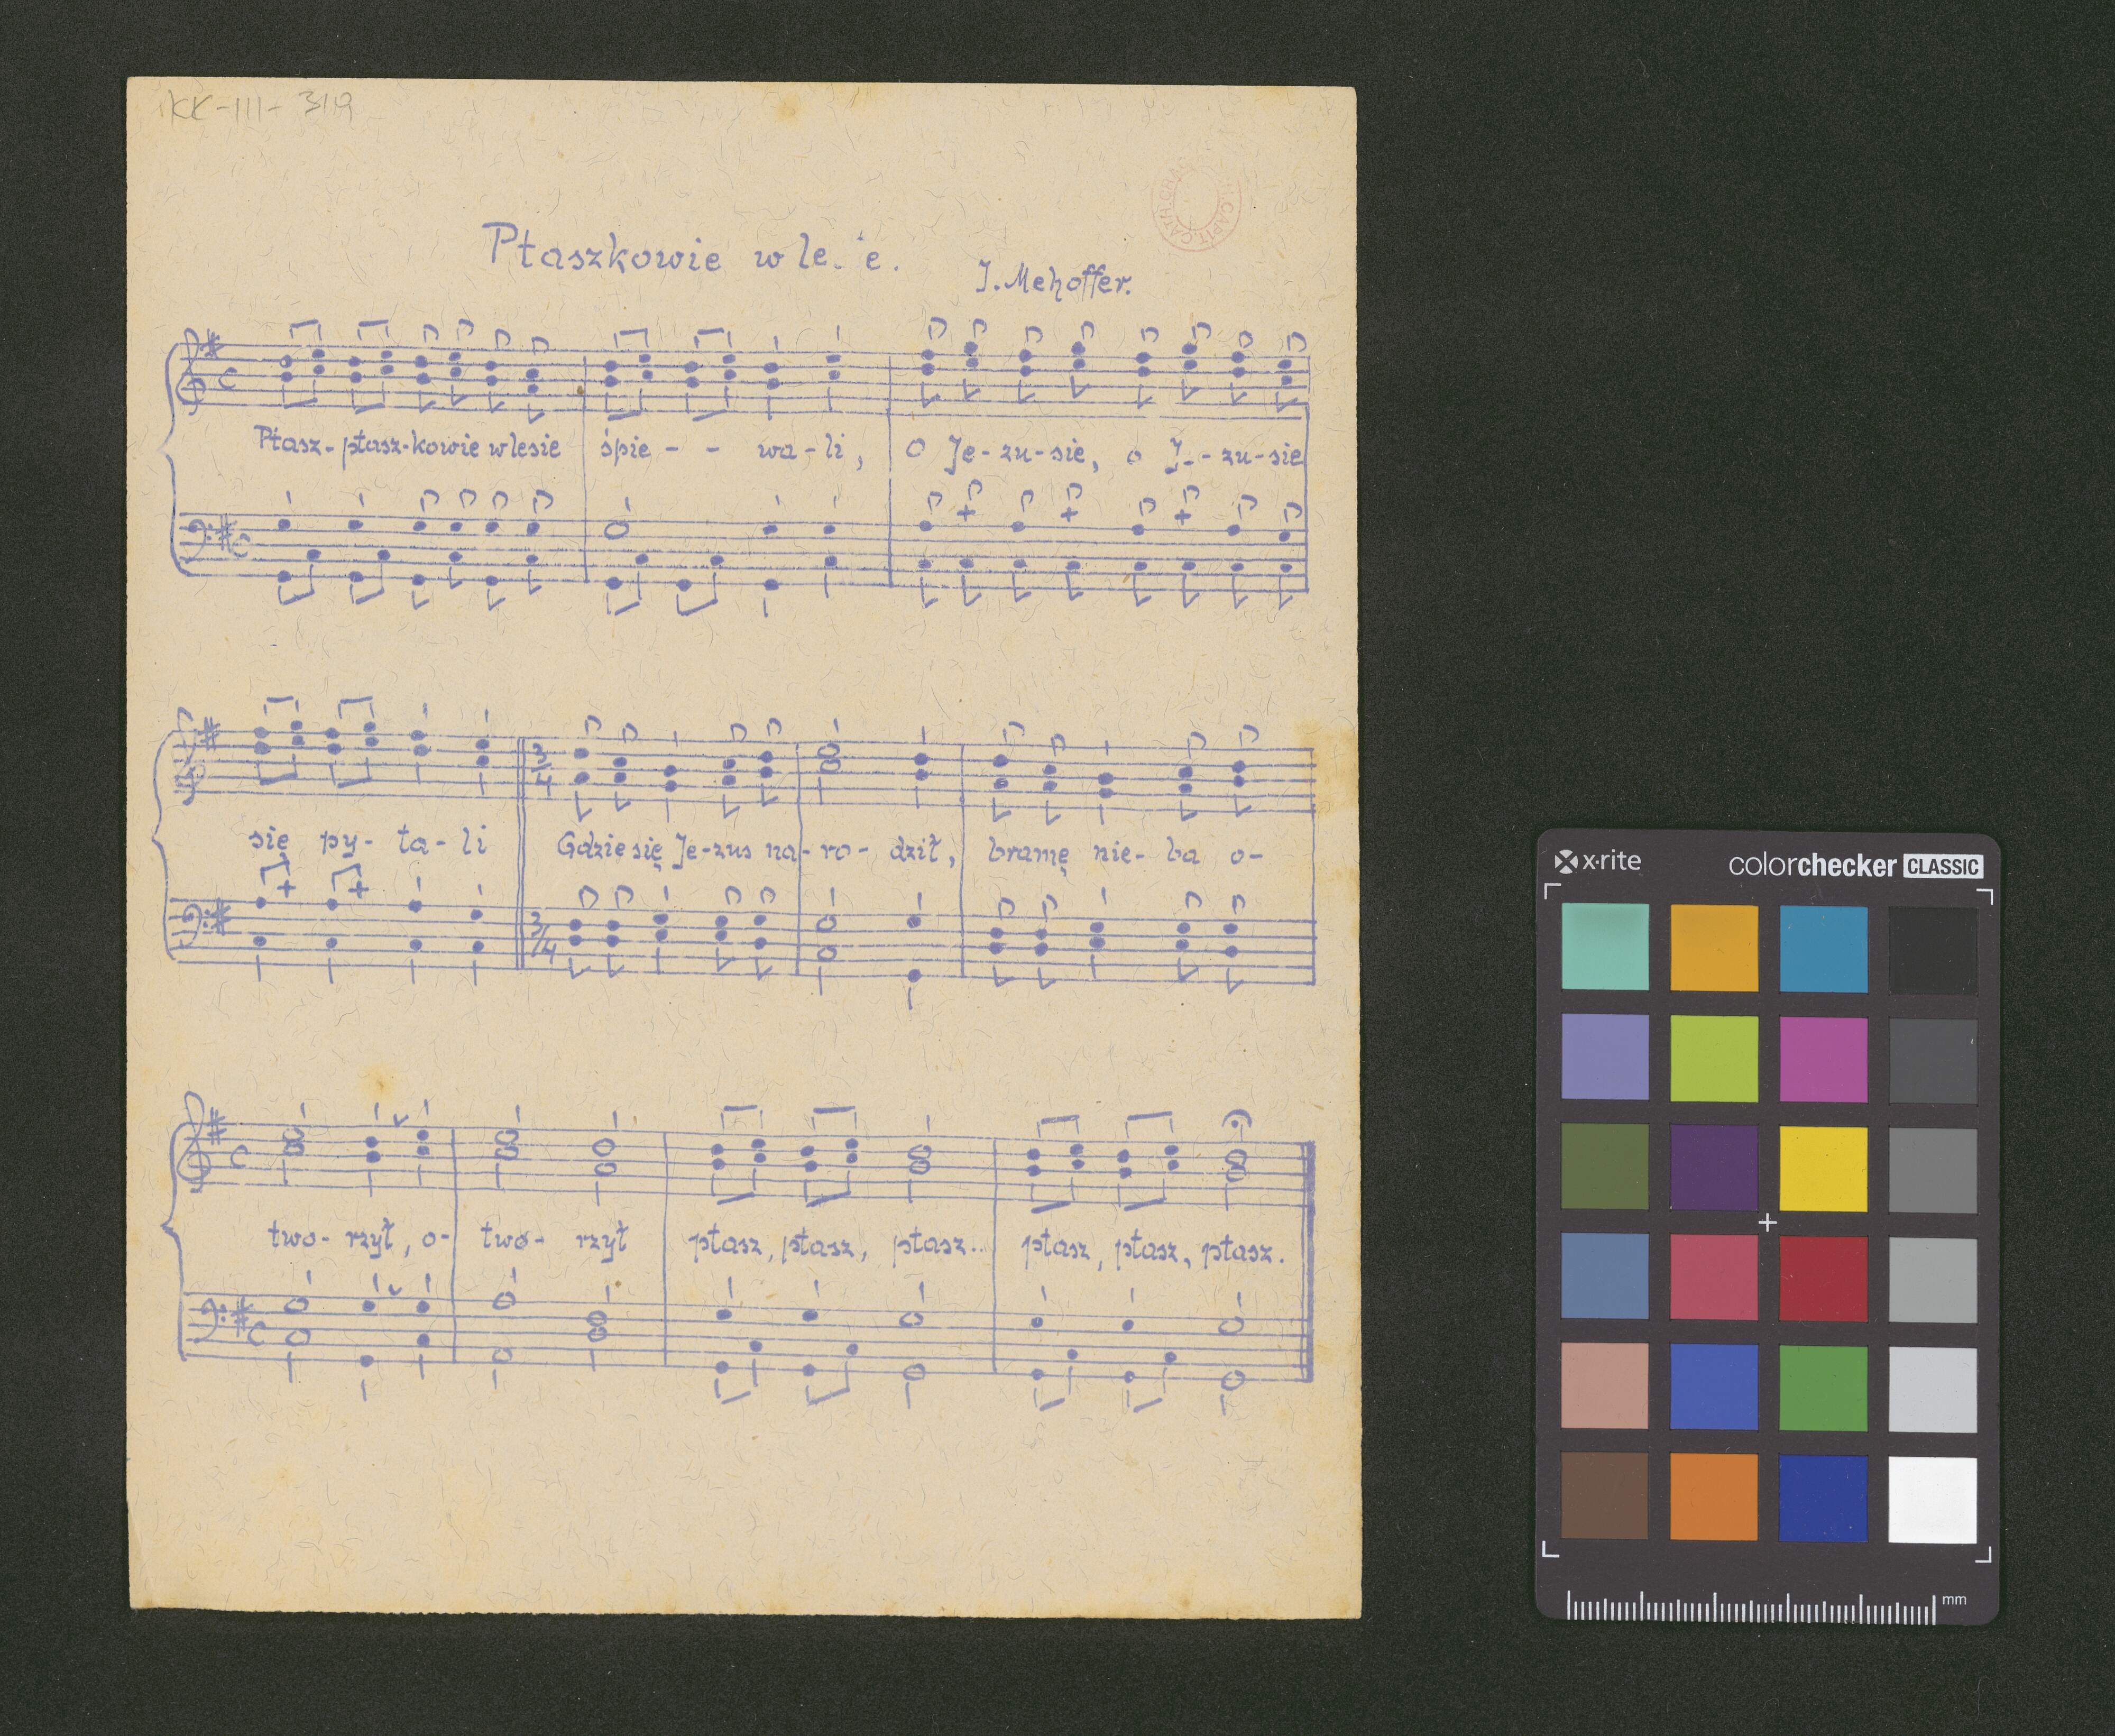 KK-III-
CAPIT. CATH. CRAC
Ptaszkowie w le. e.
J. Mehoffer.
C
Ptasz-ptasz-kowie w lesie śpie - - wa-li, O Je-zu-sie, o J.-zu-sie
C
3/4
się py-ta-li Gdzie się Je-zus na-ro-dził, bramę nie-ba o-
3/4
C
two-rzył, o-two-rzył ptasz, ptasz, ptasz.. ptasz, ptasz, ptasz.
C
x-rite colorchecker CLASSIC
mm